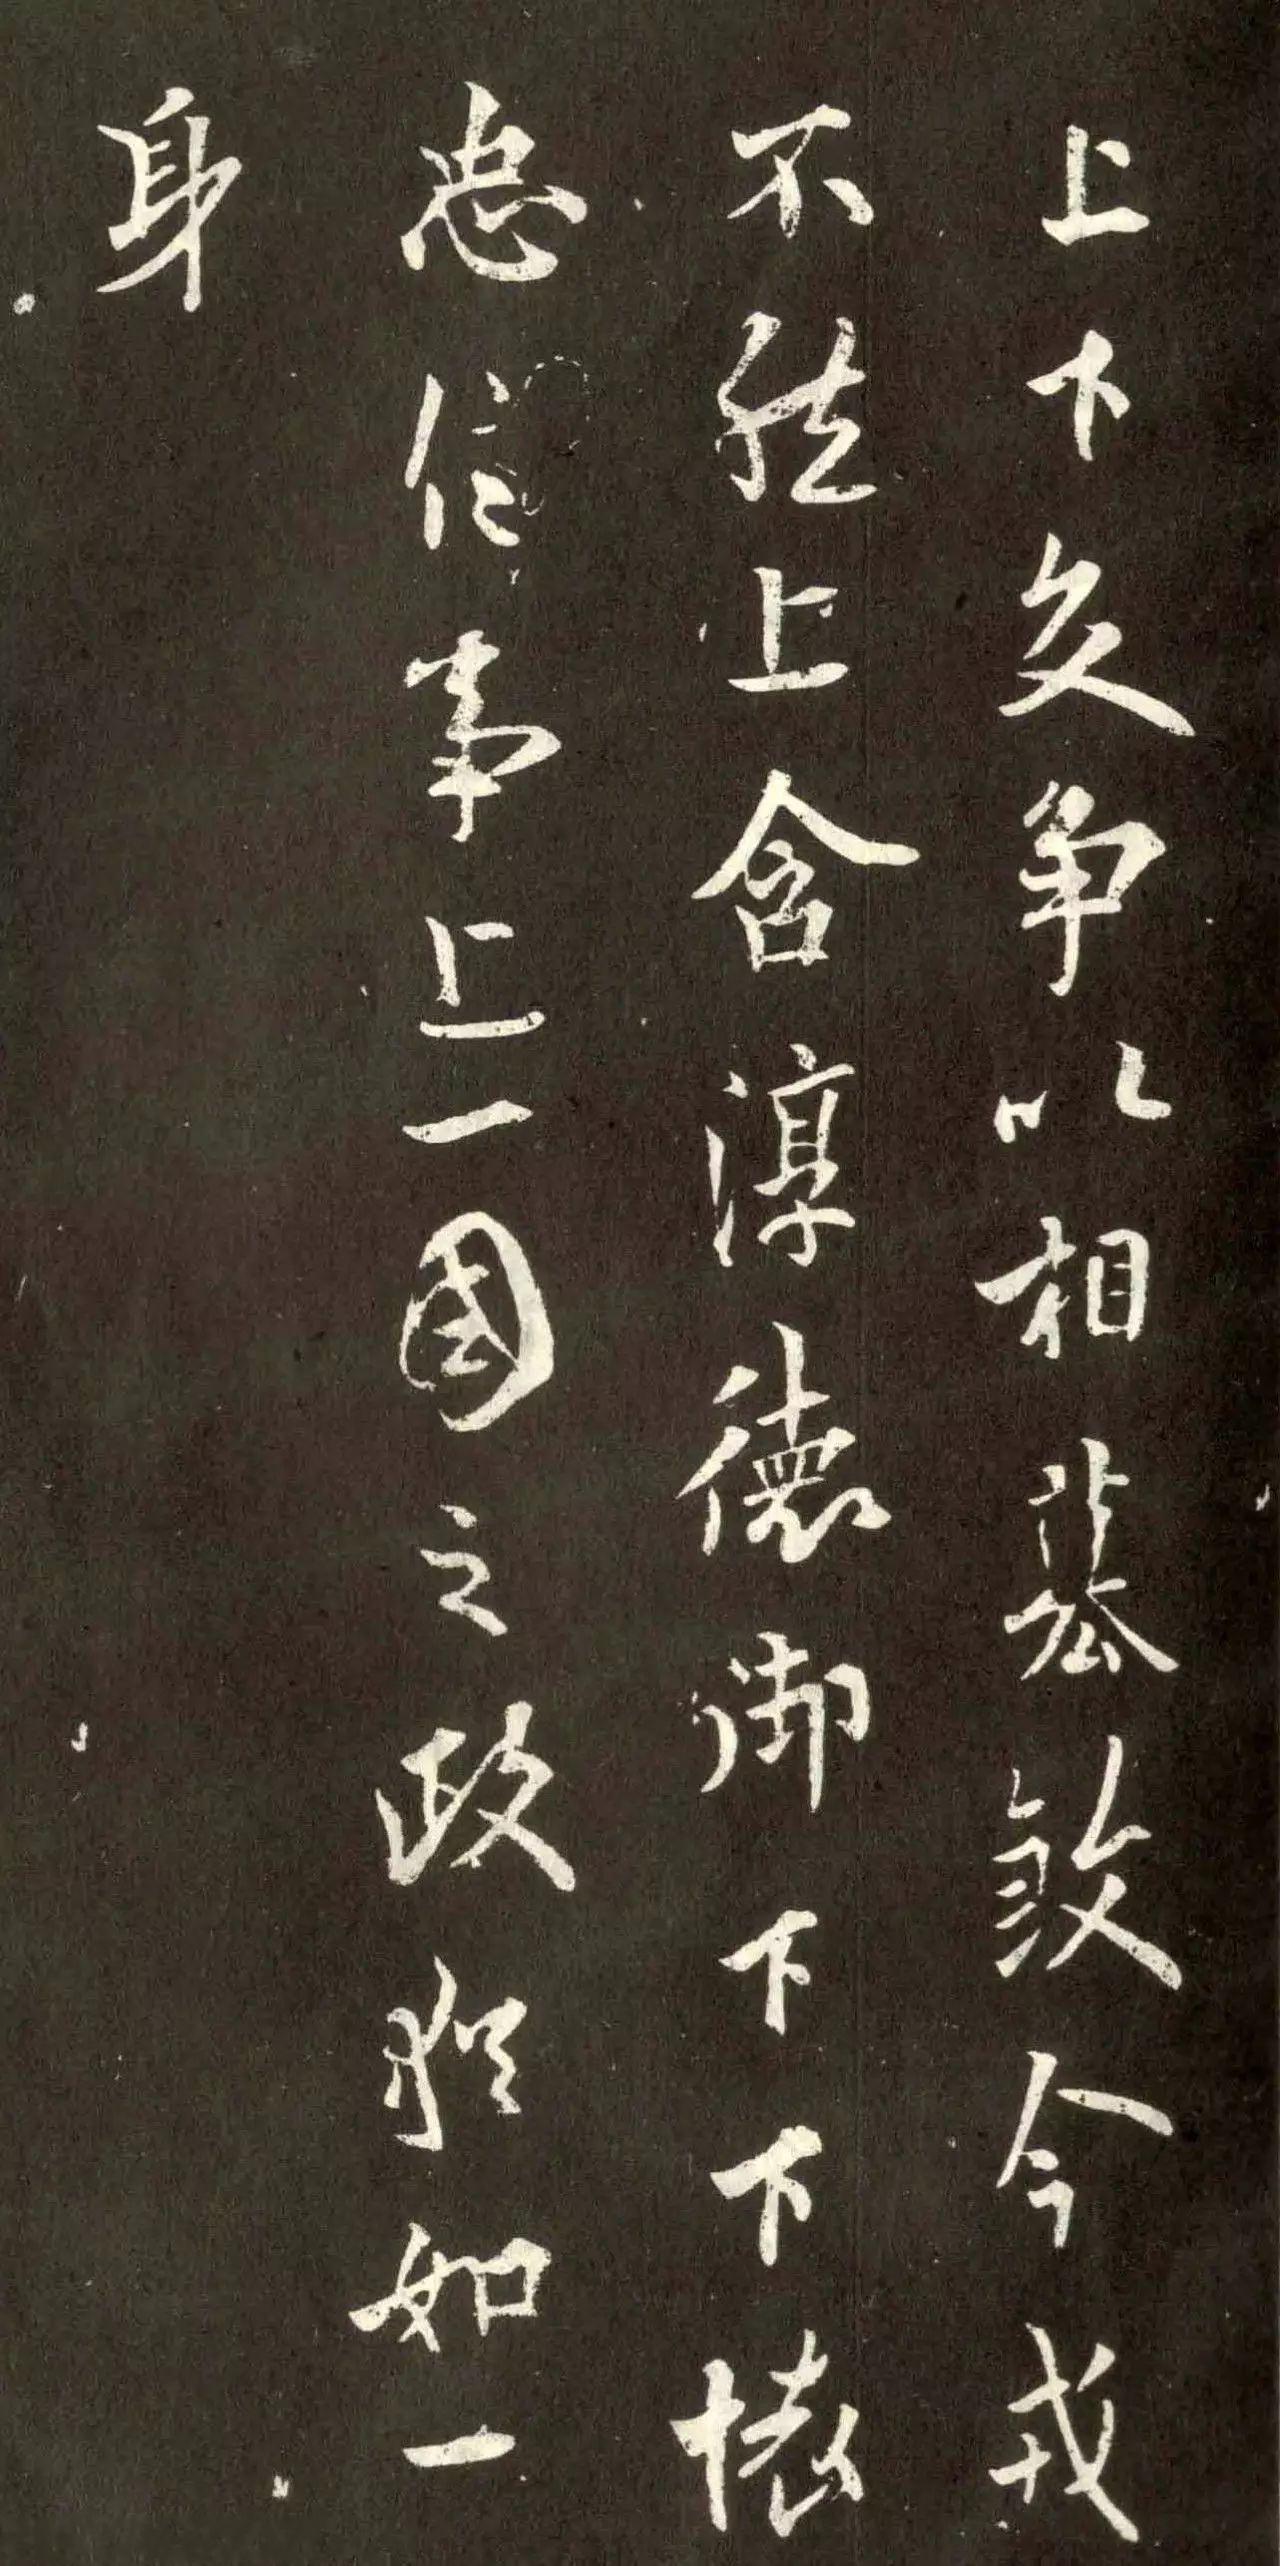 上下交争以相篡弑今戎
不然上含淳德御下下懷
忠信事上一國之政猶如一
身